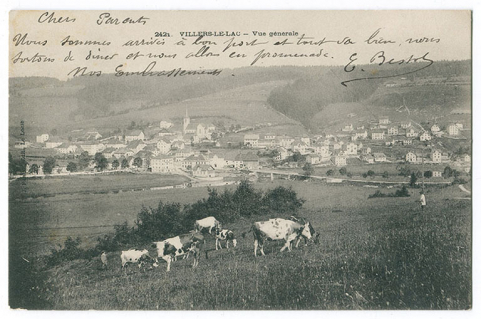 Chers Parents
2421. VILLERS-LE-LAC - Vue générale
Nous sommes arrivés à bon port et tout va bien, nous
sortons de diner et nous allons en promenade.
Nos Embrassements
E. Bristol